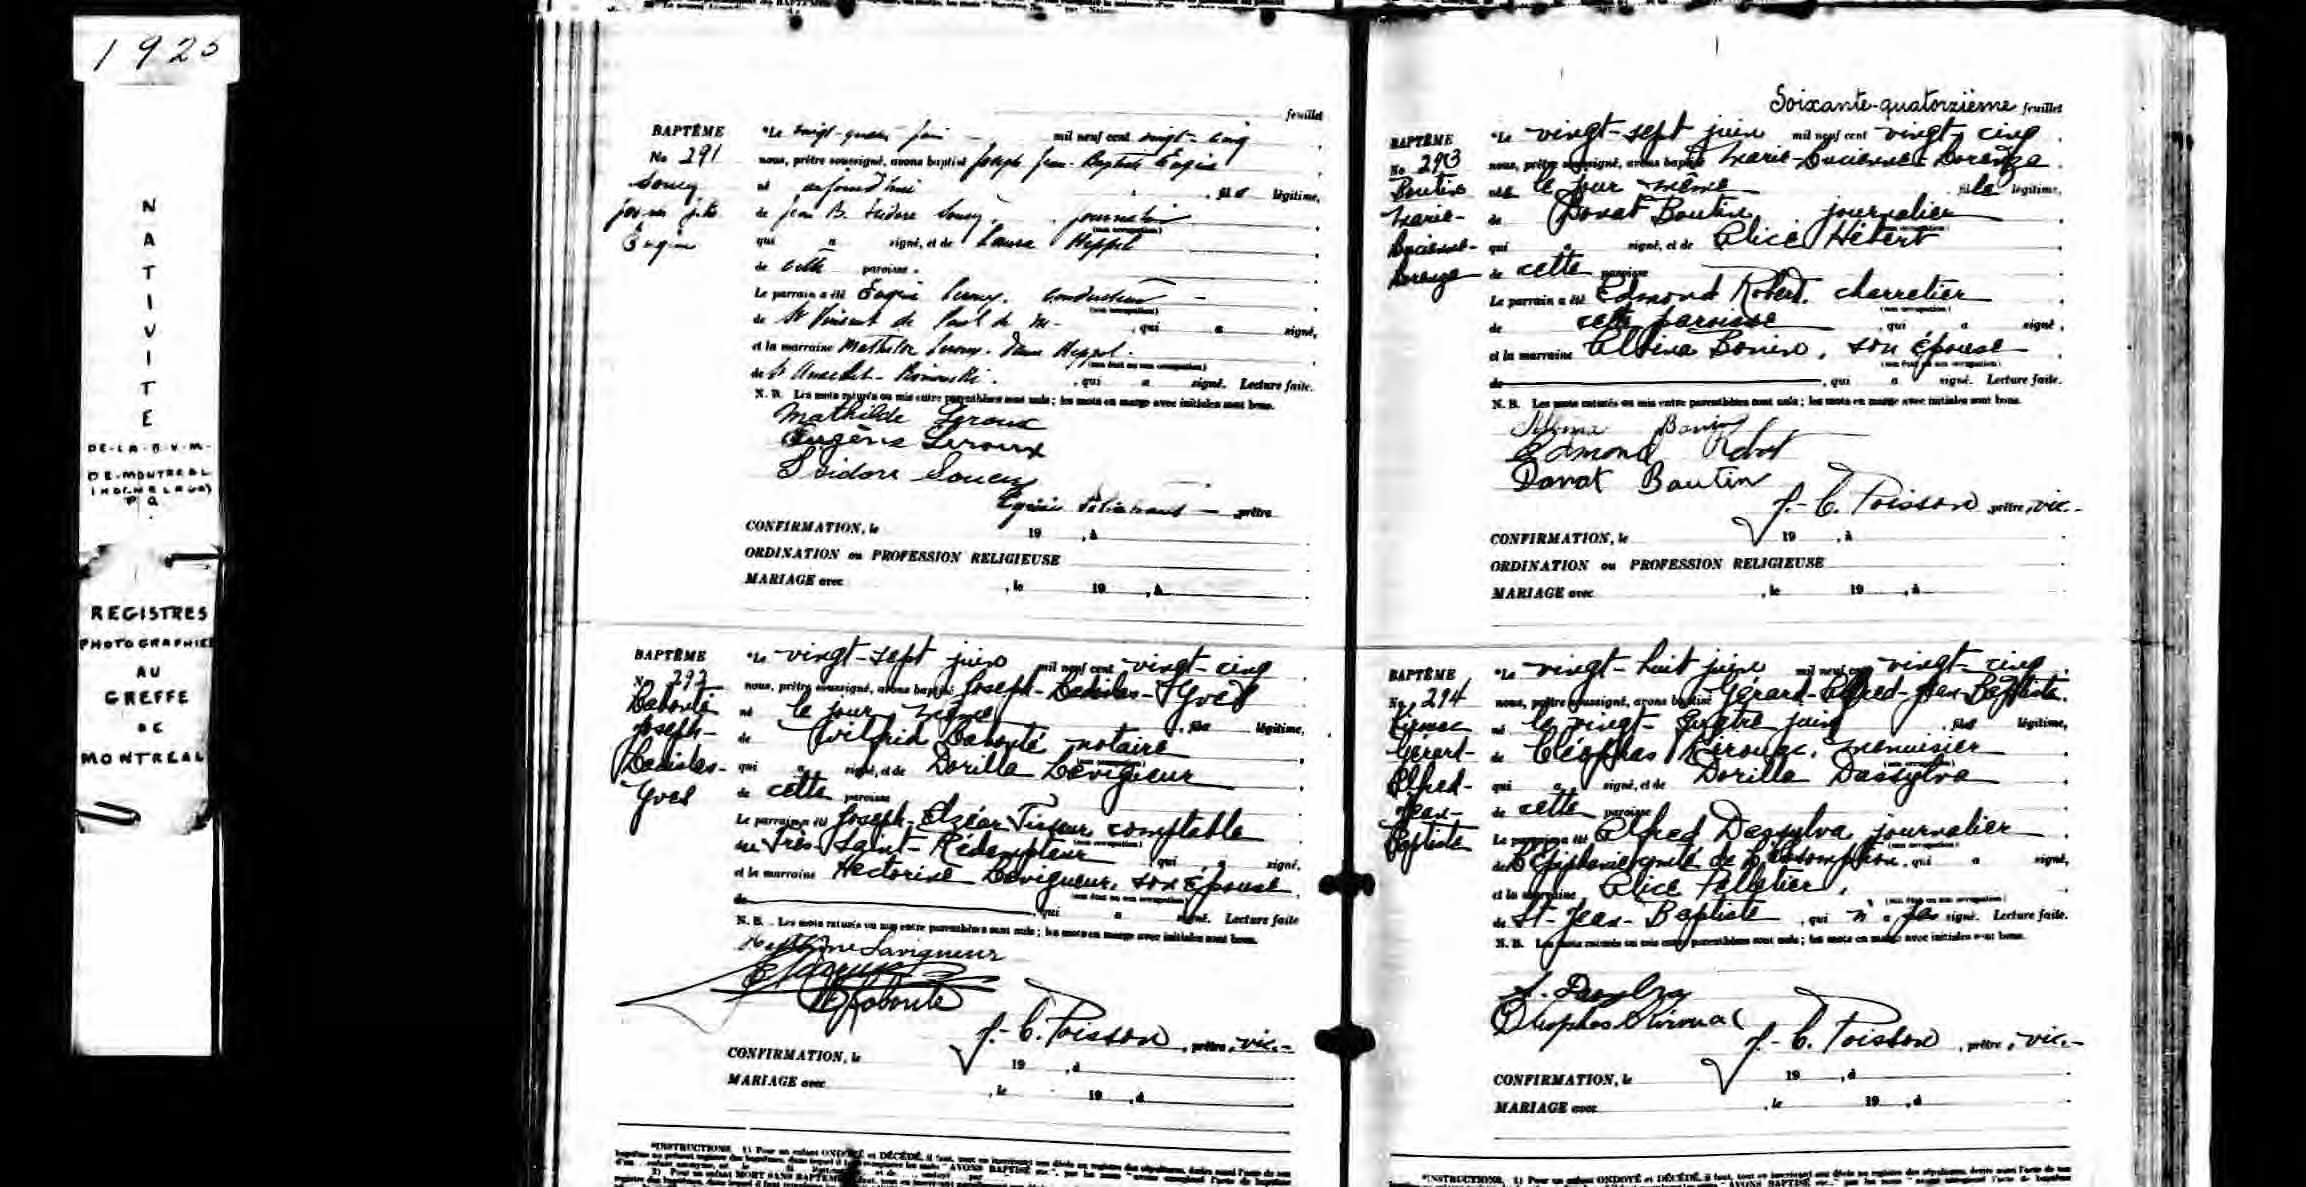 1925
N
A
T
I
V
I
T
E
DE-LA-B-V-M-
DE-MONTREAL
(HOCHELAGA)
P Q
REGISTRES
PHOTOGRAPHIES
AU
GREFFE
DE
MONTREAL
feuillet
BAPTÊME
No 291
Soucy
Eugène
"Le vingt-quatre juin mil neuf cent vingt-cinq
nous, prêtre soussigné, avons baptisé Joseph Jean-Baptiste Eugène
né aujourd'hui , fils légitime,
de Jean B. Isidore Soucy, journalier
(son occupation)
qui a signé, et de Laura Heppel
de cette paroisse.
Le parrain a été Eugène Leroux, conducteur
(son occupation)
de St Vincent de Paul de M- , qui a signé,
et la marraine Mathilde Leroux, Dame Heppel.
(son état ou son occupation)
de St Anaclet-Rimouski. , qui a signé. Lecture faite.
N. B. Les mots raturés ou mis entre parenthèses sont nuls; les mots en marge avec initiales sont bons.
Mathilde Leroux
Eugène Leroux
Isidore Soucy
prêtre
CONFIRMATION, le 19 , à
ORDINATION ou PROFESSION RELIGIEUSE
MARIAGE avec , le 19 , à
BAPTÊME
No 292
Laboulé
Joseph-
Ladislas-
Yves
"Le vingt-sept juin mil neuf cent vingt-cinq
nous, prêtre soussigné, avons baptisé Joseph-Ladislas-Yves
né le jour même , fils légitime,
de Wilfrid Laboulé notaire
(son occupation)
qui a signé, et de Dorilla Lavigueur
de cette paroisse
Le parrain a été Joseph-Elzéar Tisseur comptable
(son occupation)
du Très-Saint-Rédempteur qui a signé,
et la marraine Hectorine Lavigueur, son épouse,
(son état ou son occupation)
de , qui a signé. Lecture faite
N. B. Les mots raturés ou mis entre parenthèses sont nuls; les mots en marge avec initiales sont bons.
Hectorine Lavigueur
J.-C. Poisson, prêtre, vic.-
CONFIRMATION, le 19 , à
MARIAGE avec , le 19 , à
Soixante-quatorzième feuillet
BAPTÊME
No 293
Boutin
Marie-
Lucienne-
Lorenza
"Le vingt-sept juin mil neuf cent vingt-cinq
nous, prêtre soussigné, avons baptisé Marie-Lucienne-Lorenza
née le jour même fille légitime,
de Donat Boutin, journalier
(son occupation)
qui a signé, et de Alice Hébert
de cette paroisse
Le parrain a été Edmond Robert, charretier
(son occupation)
de cette paroisse , qui a signé,
et la marraine Albina Bonin, son épouse
(son état ou son occupation)
de , qui a signé. Lecture faite.
N. B. Les mots raturés ou mis entre parenthèses sont nuls; les mots en marge avec initiales sont bons.
Bonin
Edmond Robert
Donat Boutin
J.-C. Poisson prêtre, vic.-
CONFIRMATION, le 19 , à
ORDINATION ou PROFESSION RELIGIEUSE
MARIAGE avec , le 19 , à
BAPTÊME
No 294
Kirouac
Gérard-
Alfred-
Jean-
Baptiste
"Le vingt-huit juin mil neuf cent vingt-cinq
nous, prêtre soussigné, avons baptisé Gérard-Alfred-Jean-Baptiste
né le vingt-quatre juin , fils légitime,
de Cléophas Kirouac, menuisier
(son occupation)
qui a signé, et de Dorilla Dassylva
de cette paroisse
Le parrain a été Alfred Dassylva, journalier
(son occupation)
de L'Epiphanie, comté de L'Assomption, qui a signé,
et la marraine Alice Pelletier,
(son état ou son occupation)
de St-Jean-Baptiste , qui n'a pas signé. Lecture faite.
N. B. Les mots raturés ou mis entre parenthèses sont nuls; les mots en marge avec initiales sont bons.
A. Dassylva
Cléophas Kirouac
J.-C. Poisson, prêtre, vic.-
CONFIRMATION, le 19 , à
MARIAGE avec , le 19 , à